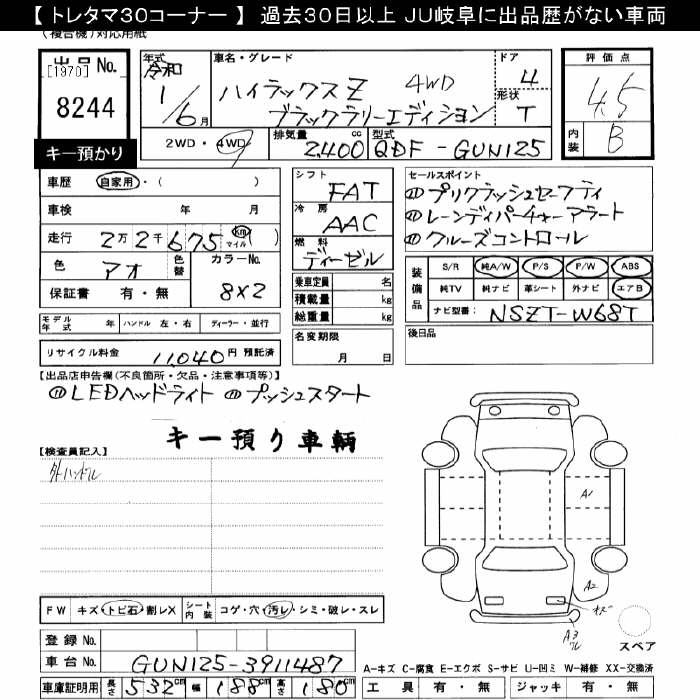 【 トレタマ30コーナー 】 過去30日以上 JU岐阜に出品歴がない車両
(複合機)対応用紙
出品No.
[1970]
8244
キー預かり
年式
令和
1/6月
車名・グレード
ハイラックス Z 4WD
ブラックラリーエディション
ドア
4
形状
T
2WD・4WD
排気量
2400cc
型式
QDF-GUN125
評価点
4.5
内装
B
車歴 自家用・( )
車検 年 月
走行 2万2千675 km マイル ( )
色 アオ 色替
カラーNo.
8X2
保証書 有・無
シフト
FAT
冷房
AAC
燃料
ディーゼル
乗車定員 名
積載量 kg
総重量 kg
セールスポイント
⑪プリクラッシュセーフティ
⑪レーンディパーチャーアラート
⑪クルーズコントロール
装備品
S/R 純A/W P/S P/W ABS
純TV 純ナビ 革シート 外ナビ エアB
ナビ型番: NSZT-W68T
モデル年式 年 ハンドル 左・右 ディーラー・並行
名変期限
月 日
後日品
リサイクル料金 11,040円 預託済
【出品店申告欄(不良箇所・欠品・注意事項等)】
⑪LEDヘッドライト ⑪プッシュスタート
キー預り車輌
【検査員記入】
外ハンドル
A1
A2
キズ
A3
ワレ
スペア
FW キズ・トビ石・割レX シート内装 コゲ・穴・汚レ・シミ・破レ・スレ
登録No.
車台No. GUN125-3911487
車庫証明用 長さ 532cm 幅 188cm 高さ 180cm
A-キズ C-腐食 E-エクボ S-サビ U-凹ミ W-補修 XX-交換済
工具 有・無 ジャッキ 有・無